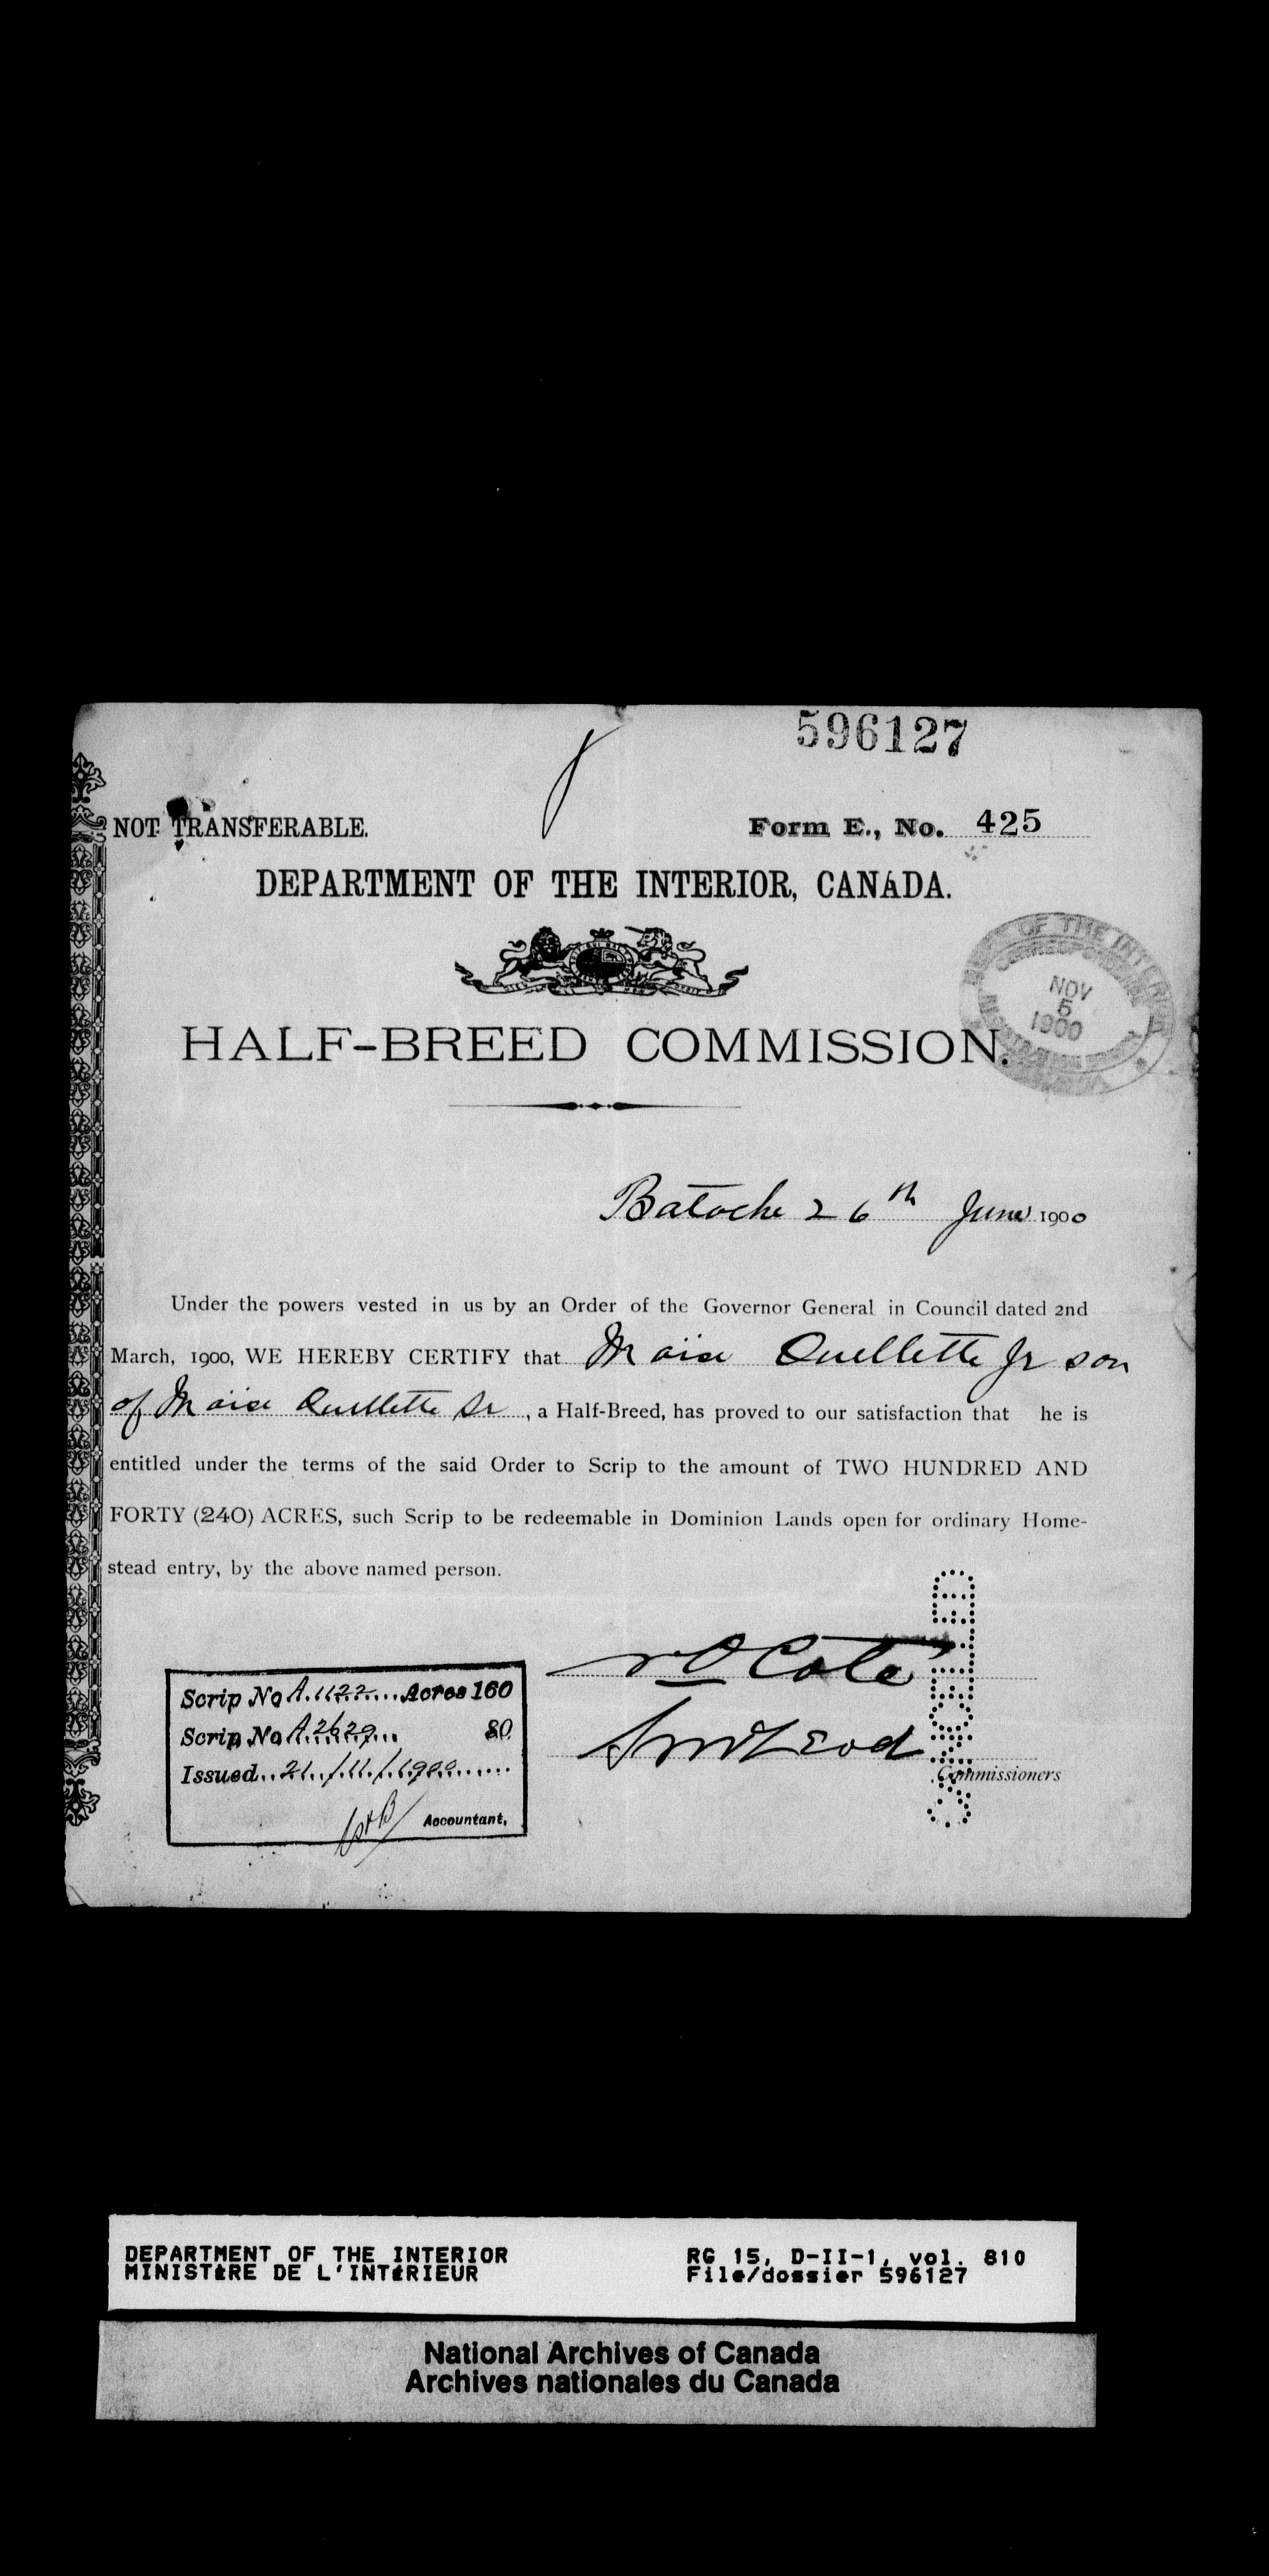 596127
NOT TRANSFERABLE.
Form E., No. 425
DEPARTMENT OF THE INTERIOR, CANADA.
OF THE INTERIOR
NOV
5
1900
HALF-BREED COMMISSION.
Batoche 26th June 1900
Under the powers vested in us by an Order of the Governor General in Council dated 2nd
March, 1900, WE HEREBY CERTIFY that Moïse Ouellette Jr son
of Moïse Ouellette Sr, a Half-Breed, has proved to our satisfaction that he is
entitled under the terms of the said Order to Scrip to the amount of TWO HUNDRED AND
FORTY (240) ACRES, such Scrip to be redeemable in Dominion Lands open for ordinary Home-
stead entry, by the above named person.
Coté
McLeod
Commissioners
Scrip No A.1122 Acres 160
Scrip No A.2629 80
Issued 21/11/1900
Accountant,
DEPARTMENT OF THE INTERIOR
MINISTÈRE DE L'INTÉRIEUR
RG 15, D-II-1, vol. 810
File/dossier 596127
National Archives of Canada
Archives nationales du Canada